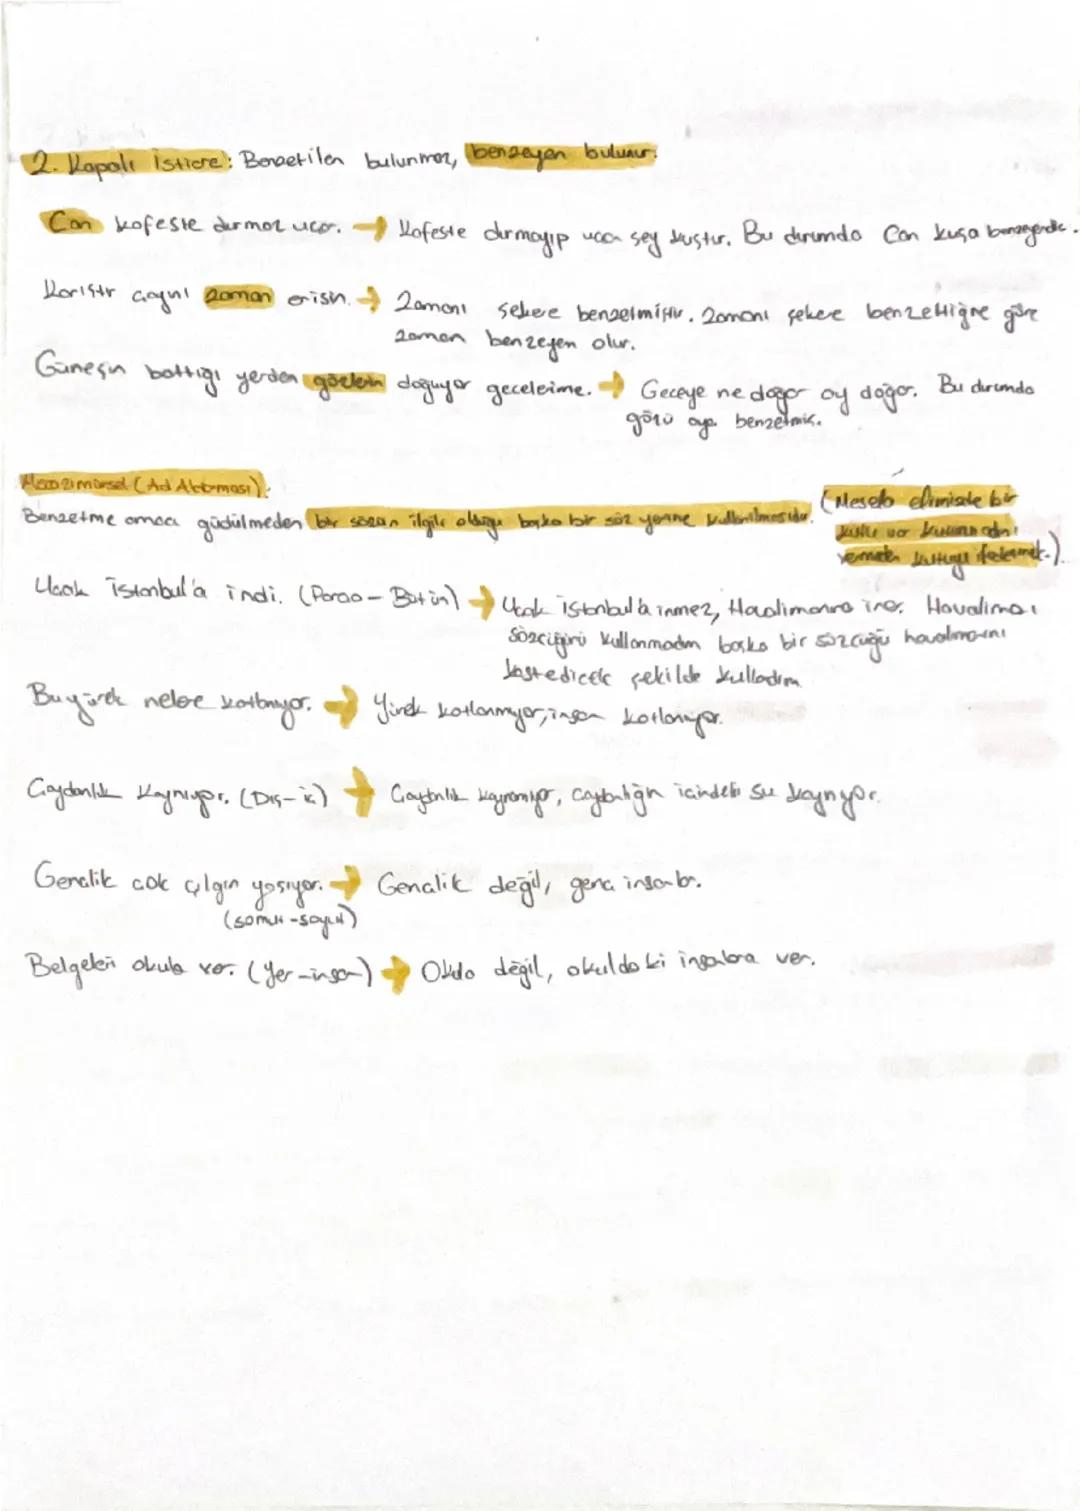 2. Kapalı İstiare: Benzetilen bulunmaz, benzeyen bulunur.
Can kafeste durmaz uçar. → Kafeste durmayıp uçan şey kuştur. Bu durumda Can kuşa benzeyendir.
Karıştır çayını zaman erisin. → Zamanı şekere benzetmiştir. Zamanı şekere benzettiğine göre
zaman benzeyen olur.
Güneşin battığı yerden gözlerin doğuyor gecelerime. → Geceye ne doğar ay doğar. Bu durumda
gözü aya benzetmiş.
Mecazımürsel (Ad Aktarması):
Benzetme amacı güdülmeden bir sözün ilgili olduğu başka bir söz yerine kullanılmasıdır. (Mesela elimizde bir
kutu var kutunun adını
vermeden kutuyu ifade etmek.).
Uçak İstanbul'a indi. (Parça-Bütün) → Uçak İstanbul'a inmez, Havalimanına iner. Havalimanı
sözcüğünü kullanmadan başka bir sözcüğü havalimanını
kastedicek şekilde kulladım
Bu yürek nelere katlanıyor. → Yürek katlanmıyor, insan katlanıyor.
Çaydanlık kaynıyor. (Dış-iç) → Çaydanlık kaynamıyor, çaydanlığın içindeki su kaynıyor.
Gençlik çok çılgın yaşıyor. → Gençlik değil, genç insanlar.
(somut-soyut)
Belgeleri okula ver. (Yer-insan) → Okula değil, okuldaki insanlara ver.